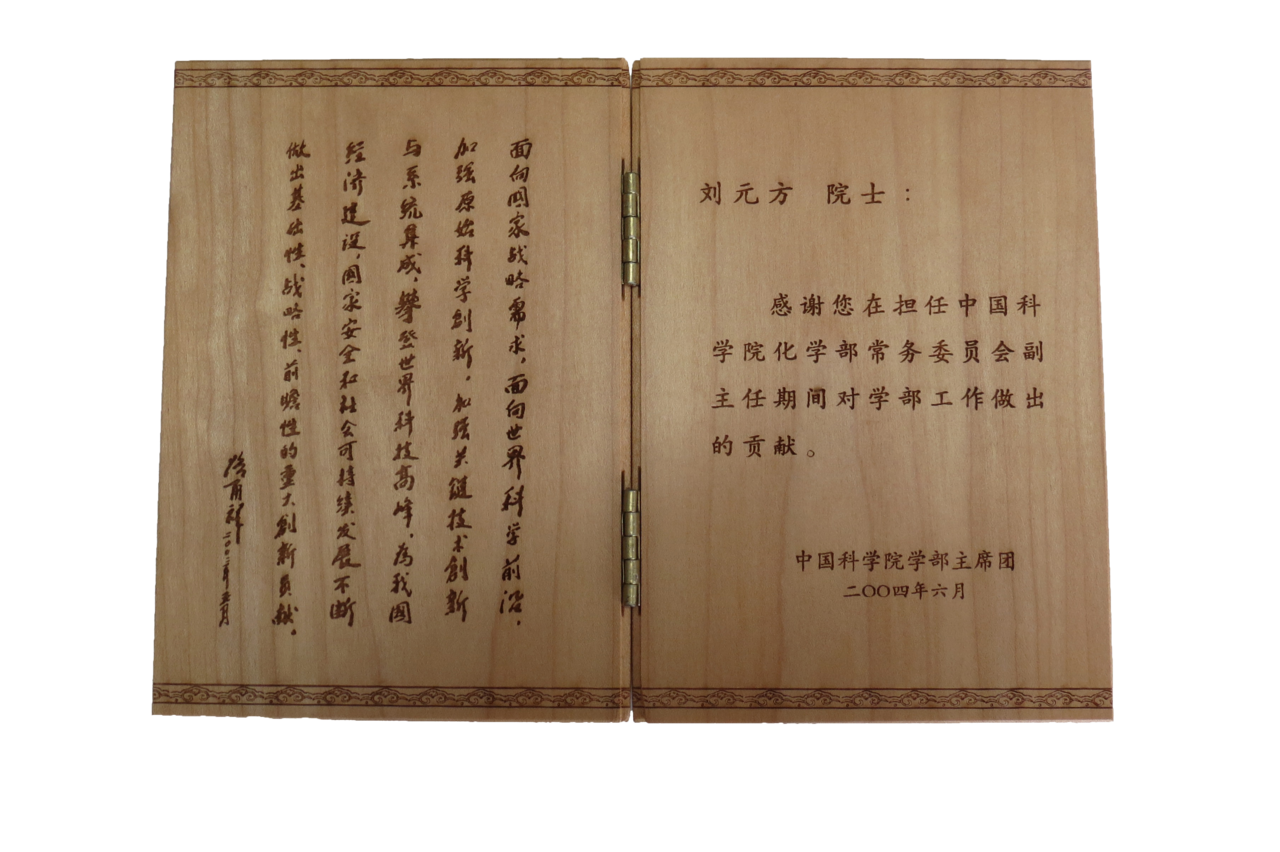 面向国家战略需求，面向世界科学前沿，
加强原始科学创新，加强关键技术创新
与系统集成，攀登世界科技高峰，为我国
经济建设，国家安全和社会可持续发展不断
做出基础性、战略性、前瞻性的重大创新贡献。
路甬祥
刘元方 院士：
感谢您在担任中国科
学院化学部常务委员会副
主任期间对学部工作做出
的贡献。
中国科学院学部主席团
二〇〇四年六月